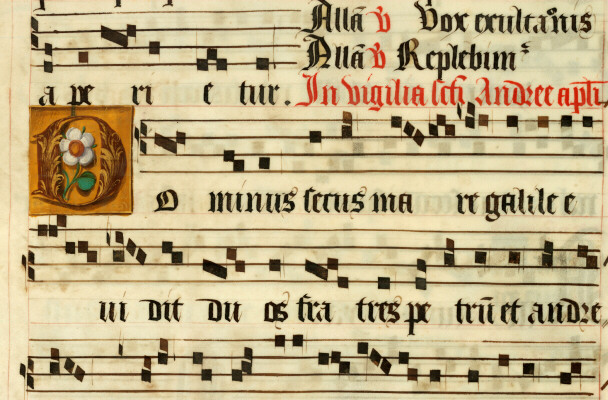 Allã v̄ Vox exultatõnis
Allã v̄ Replebimꝰ
a pe ri e tur. In vigilia scti Andree apli
D O minus secus ma re galilee
vi dit du os fra tres pe trũ et andre